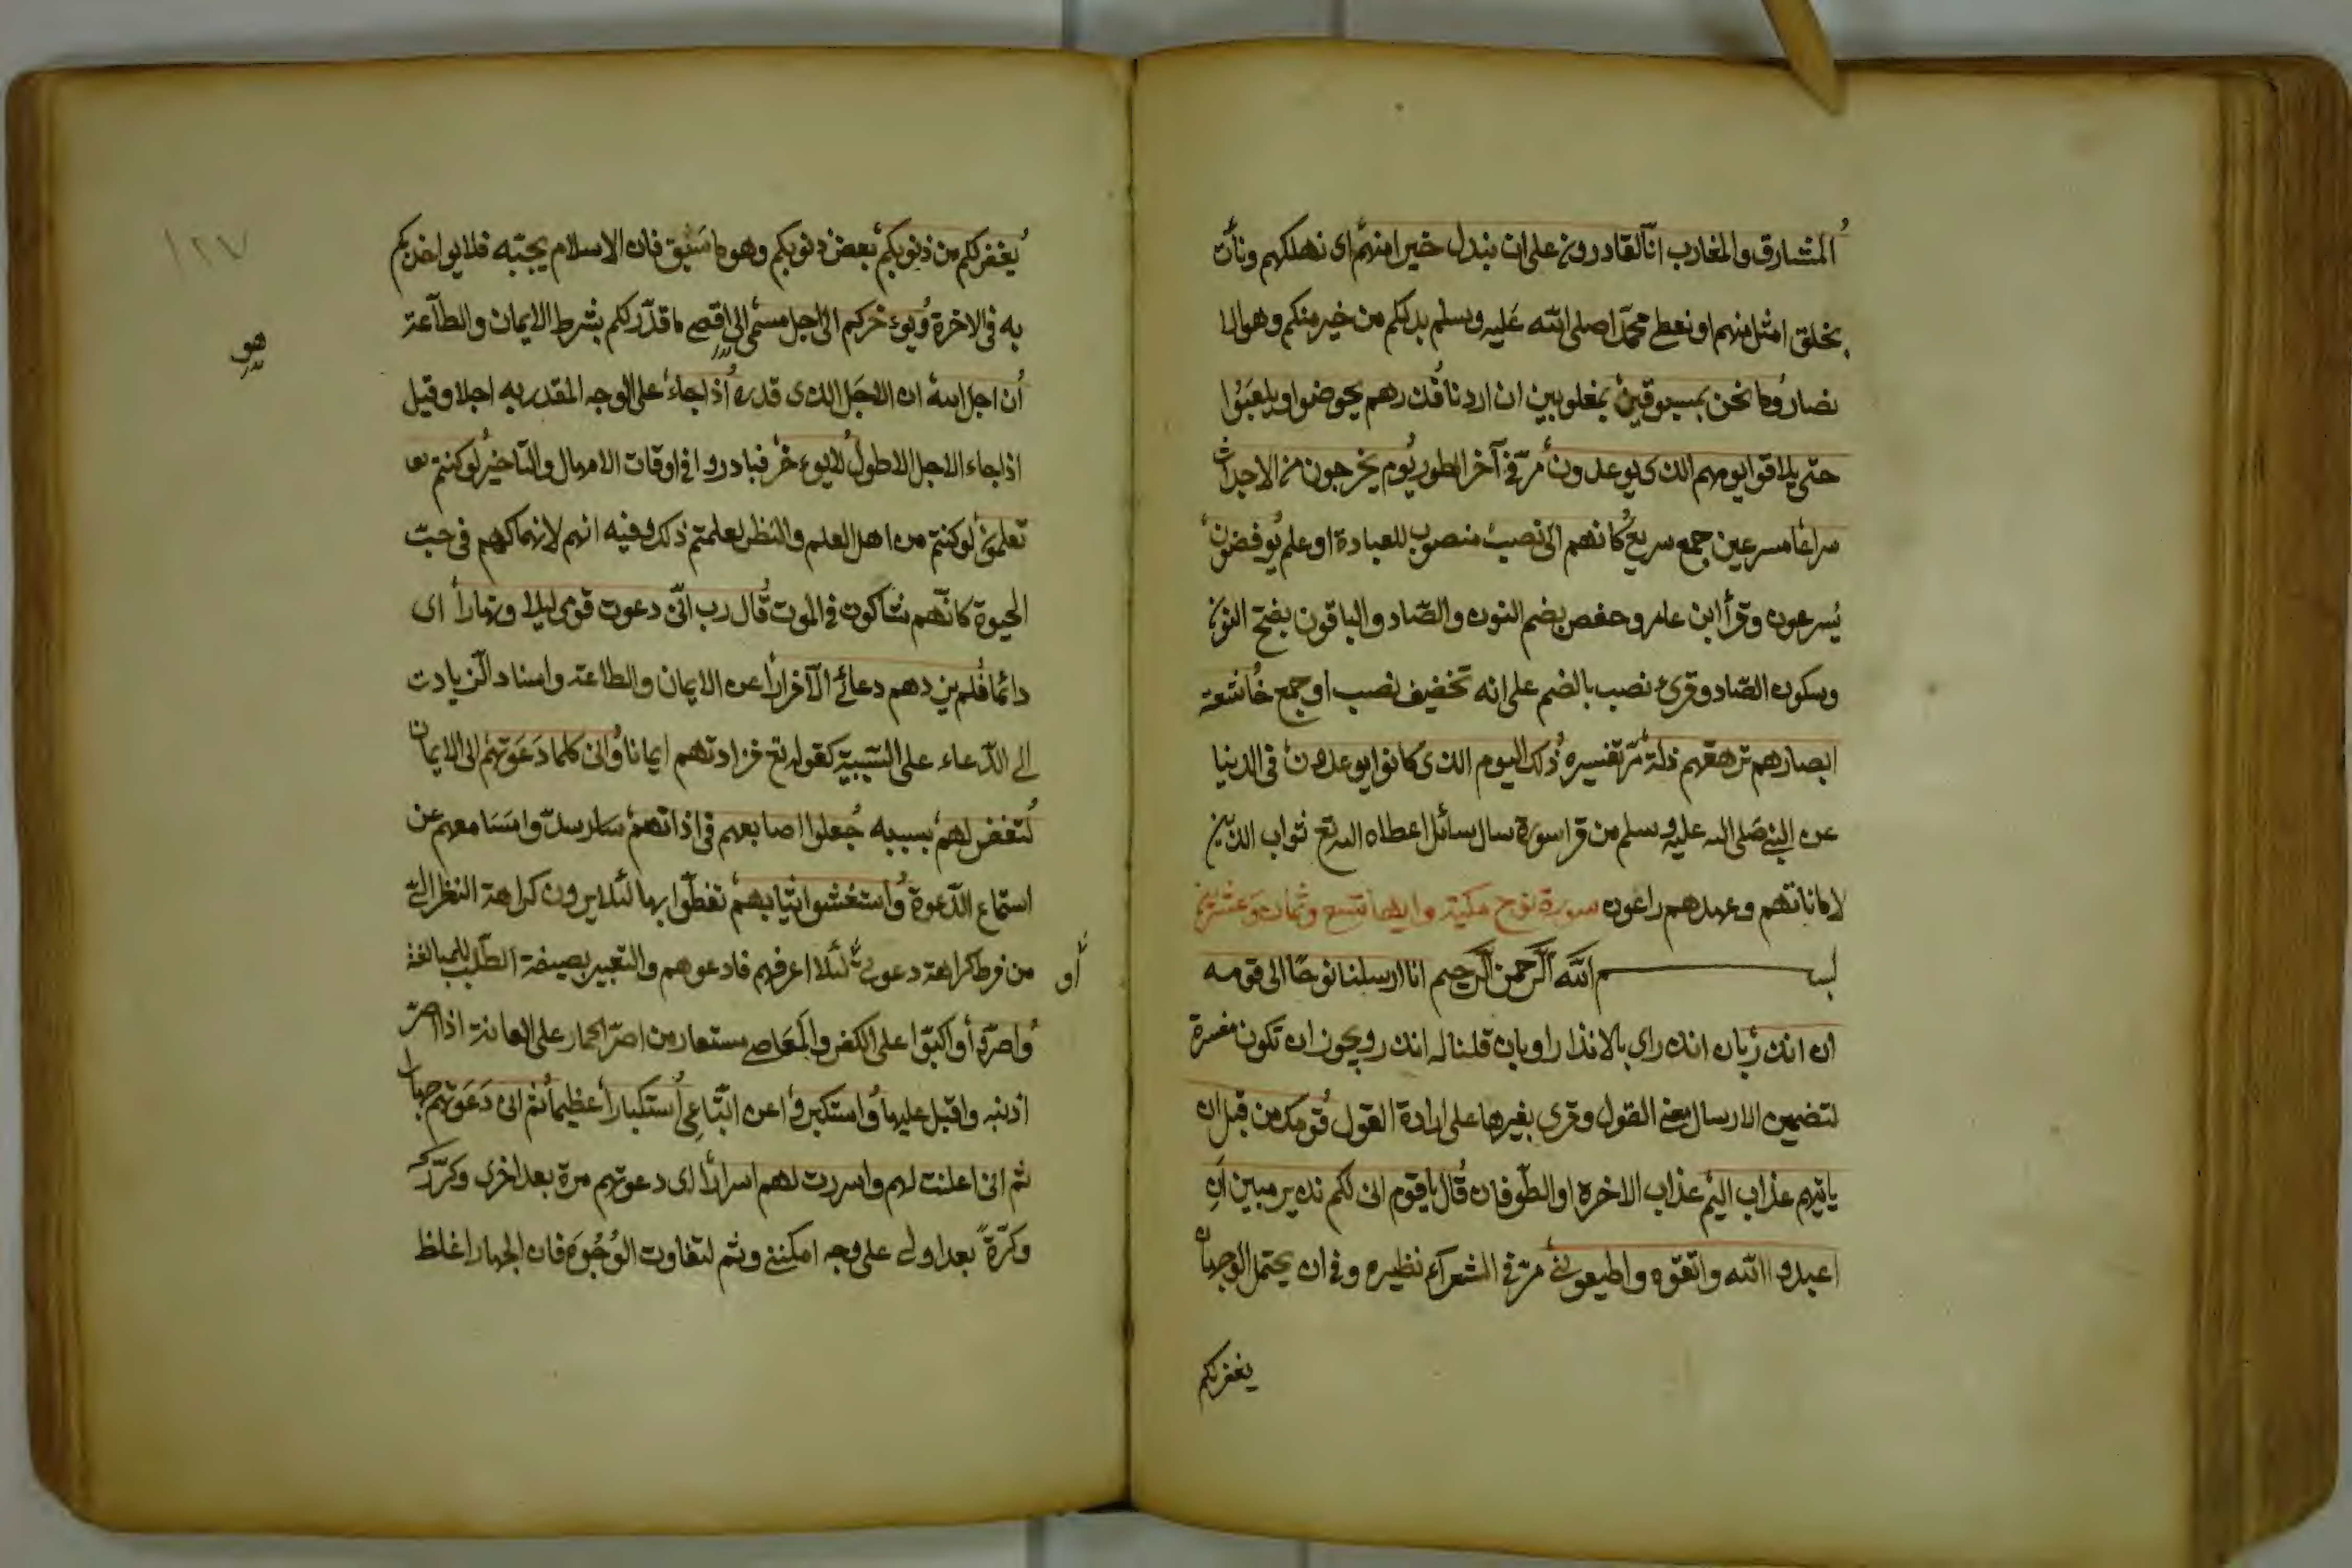 المشارق والمغارب انا لقادرون على ان نبدل خيرا منهم اى نهلكهم ونأت
بخلق امثل منهم او نعطى محمدا صلى الله عليه وسلم بدلكم من خير منكم وهو الا
نصار وما نحن بمسبوقين بمغلوبين ان اردنا فذرهم يخوضوا ويلعبوا
حتى يلاقوا يومهم الذى يوعدون مر فى آخر الطور يوم يخرجون من الاجداث
سراعا مسرعين جمع سريع كانهم الى نصب منصوب للعبادة او علم يوفضون
يسرعون وقرأ ابن عامر وحفص بضم النون والصاد والباقون بفتح النون
وسكون الصاد وقرئ نصب بالضم على انه تخفيف نصب او جمع خاشعة
ابصارهم ترهقهم ذلة مر تفسيره ذلك اليوم الذى كانوا يوعدون فى الدنيا
عن النبى صلى الله عليه وسلم من قرا سورة سال سائل اعطاه الله تع ثواب الذين
لاماناتهم وعهدهم راعون سورة نوح مكية وايها تسع وثمان وعشرين
بسم الله الرحمن الرحيم انا ارسلنا نوحا الى قومه
ان انذر بان انذر اى بالانذار او بان قلنا له انذر ويجوز ان تكون مفسرة
لتضمين الارسال معنى القول وقرى بغيرها على ارادة القول قومك من قبل ان
ياتيهم عذاب اليم عذاب الاخرة او الطوفان قال يا قوم انى لكم نذير مبين ان
اعبدوا الله واتقوه واطيعون مر فى الشعراء نظيره وفى ان يحتمل الوجهان
يغفر لكم
١٢٧
يغفر لكم من ذنوبكم بعض ذنوبكم وهو ما سبق فان الاسلام يجبه فلا يواخذكم
به فى الاخرة ويؤخركم الى اجل مسمى الى اقصى ما قدر لكم بشرط الايمان والطاعة
هو
ان اجل الله ان الاجل الذى قدره اذا جاء على الوجه المقدر به اجلا وقيل
اذا جاء الاجل الاطول لا يوءخر فبادروا فى اوقات الامهال والتاخير لو كنتم
تعلمون لو كنتم من اهل العلم والنظر لعلمتم ذلك وفيه انهم لانهماكهم فى حب
الحيوة كانهم شاكون فى الموت قال رب انى دعوت قومى ليلا ونهارا اى
دائما فلم يزدهم دعائى الا فرارا عن الايمان والطاعة واسناد الزيادت
الى الدعاء على السببية كقوله تع فزادتهم ايمانا وانى كلما دعوتهم الى الايمان
لتغفر لهم بسببه جعلوا اصابعهم فى اذانهم سدوا مسامعهم عن
استماع الدعوة واستغشوا ثيابهم تغطوا بها لئلا يرون كراهة النظر الى
أو
من فرط كراهة دعوتى لئلا اعرفهم فادعوهم والتعبير بصيغة الطلب للمبالغة
واصروا واكبوا على الكفر والمعاصى مستعار من اصر الحمار على العانة اذا اصر
اذنيه واقبل عليها واستكبروا عن اتباعى استكبارا عظيما ثم انى دعوتهم جهارا
ثم انى اعلنت لهم واسررت لهم اسرارا اى دعوتهم مرة بعد اخرى
وكرة بعد اولى على وجه امكننى وثم لتفاوت الوجوه فان الجهار اغلظ